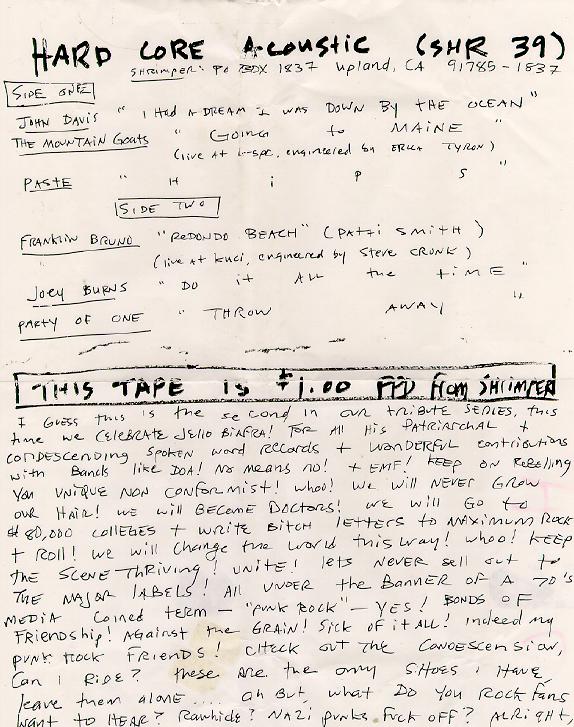 HARD CORE ACOUSTIC (SHR 39)
SHRIMPER: PO BOX 1837 Upland, CA 91785-1837
SIDE ONE
JOHN DAVIS " I HAD A DREAM I WAS DOWN BY THE OCEAN"
THE MOUNTAIN GOATS " GOING to MAINE "
(live at , engineered by ERICA TYRON)
PASTE " H i P S "
SIDE TWO
FRANKLIN BRUNO "REDONDO BEACH" (PATTI SMITH)
" (live at KUCI, engineered by STEVE CRONK)
JOEY BURNS "DO it ALL the tiME "
PARTY OF ONE " THROW AWAY "
THIS TAPE is $1.00 PPD from SHRIMPER
I GUESS this is the second in our tribute SERIES, this
time we CELEBRATE JELLO BIAFRA! FOR ALL HIS PATRIARCHAL +
CONDESCENDING SPOKEN WORD RECORDS + WONDERFUL contributions
with BANDS like DOA! NO MEANS NO! + EMF! KEEP ON REBELLING
YOU UNIQUE NON CONFORMIST! WHOO! WE WILL NEVER GROW
OUR HAIR! WE WILL BECOME DOCTORS! WE WILL GO to
$80,000 COLLEGES + WRITE BITCH LETTERS to MAXIMUM ROCK
+ ROLL! WE WILL CHANGE the WORLD this WAY! WHOO! KEEP
the SCENE THRIVING! UNITE! LETS NEVER SELL OUT to
THE MAJOR LABELS! ALL UNDER the BANNER OF A 70'S
MEDIA COINED TERM - "PUNK ROCK" - YES! BONDS OF
FRIENDSHIP! AGAINST the GRAIN! SICK OF it ALL! INDEED my
PUNK ROCK FRIENDS! CHECK OUT the CONDESCENSION,
CAN I RIDE? these ARE the only SHOES I HAVE,
leave them alone .... oh But, what DO YOU ROCK FANS
WANT to HEAR? RAWHIDE? NAZI punks FUCK OFF? ALRIGHT,